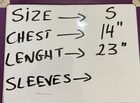 SIZE → S
CHEST → 14"
LENGHT → 23"
SLEEVES →